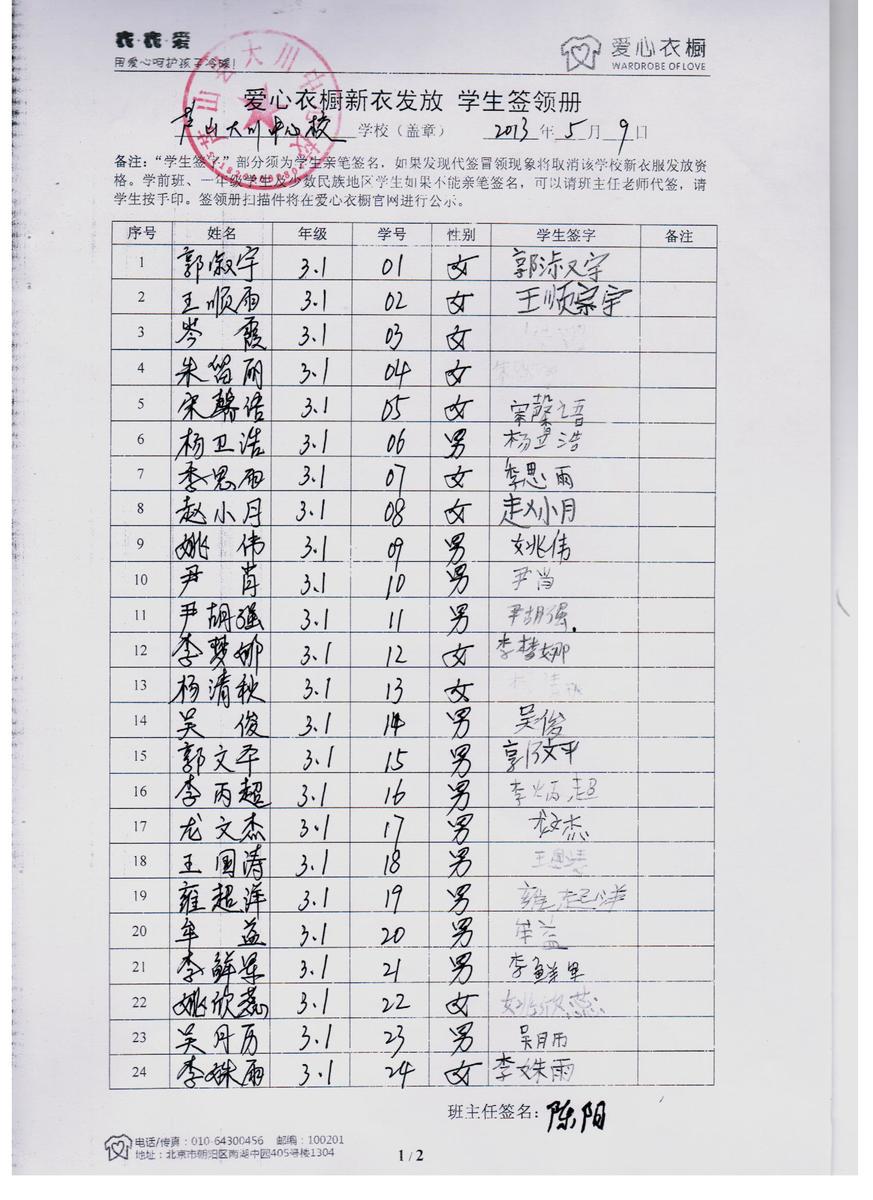 衣·衣·爱
用爱心呵护孩子冷暖!
爱心衣橱
WARDROBE OF LOVE
爱心衣橱新衣发放 学生签领册
芦山大川中心校 学校（盖章） 2013 年 5 月 9 日
备注：“学生签字”部分须为学生亲笔签名，如果发现代签冒领现象将取消该学校新衣服发放资
格。学前班、一年级学生及少数民族地区学生如果不能亲笔签名，可以请班主任老师代签，请
学生按手印。签领册扫描件将在爱心衣橱官网进行公示。
序号 姓名 年级 学号 性别 学生签字 备注
1 郭淑宇 3.1 01 女 郭淑宇
2 王顺雨 3.1 02 女 王顺宗宇
3 岑霞 3.1 03 女
4 朱笛丽 3.1 04 女
5 宋馨语 3.1 05 女 宋馨语
6 杨卫浩 3.1 06 男 杨卫浩
7 李思雨 3.1 07 女 李思雨
8 赵小月 3.1 08 女 赵小月
9 姚伟 3.1 09 男 姚伟
10 尹肖 3.1 10 男 尹肖
11 尹胡强 3.1 11 男 尹胡强
12 李梦娜 3.1 12 女 李梦娜
13 杨清秋 3.1 13 女
14 吴俊 3.1 14 男 吴俊
15 郭文平 3.1 15 男 郭文平
16 李丙超 3.1 16 男 李炳超
17 龙文杰 3.1 17 男 龙文杰
18 王国涛 3.1 18 男 王国涛
19 雍超洋 3.1 19 男 雍超洋
20 牟益 3.1 20 男 牟益
21 李鲜果 3.1 21 男 李鲜果
22 姚欣蕊 3.1 22 女 姚欣蕊
23 吴丹历 3.1 23 男 吴丹历
24 李姝雨 3.1 24 女 李姝雨
班主任签名：陈阳
电话/传真：010-64300456 邮编：100201
地址：北京市朝阳区南湖中园405号楼1304
1 / 2